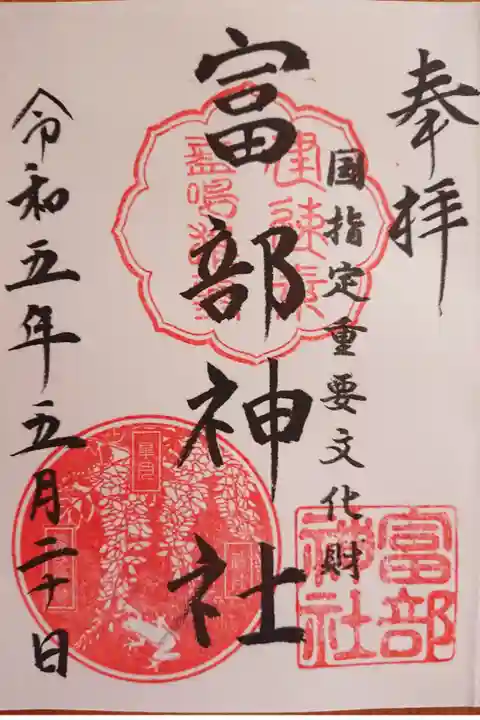 奉拝
国指定重要文化財
富部神社
令和五年五月二十日
富部
神社
皐月